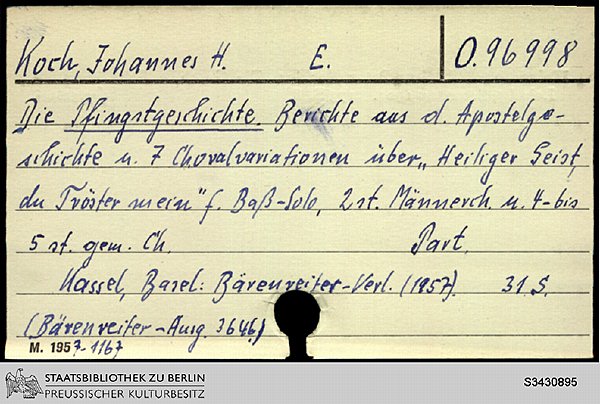 Koch, Johannes H. E. O. 96998
Die Pfingstgeschichte. Berichte aus d. Apostelge-
schichte u. 7 Choralvariationen über „Heiliger Geist,
du Tröster mein" f. Baß-Solo, 2 st. Männerch. u. 4-bis
5 st. gem. Ch. Part.
Kassel, Basel: Bärenreiter-Verl. (1957). 31 S.
(Bärenreiter-Ausg. 3646.)
M. 1957-1167
STAATSBIBLIOTHEK ZU BERLIN
PREUSSISCHER KULTURBESITZ
S3430895